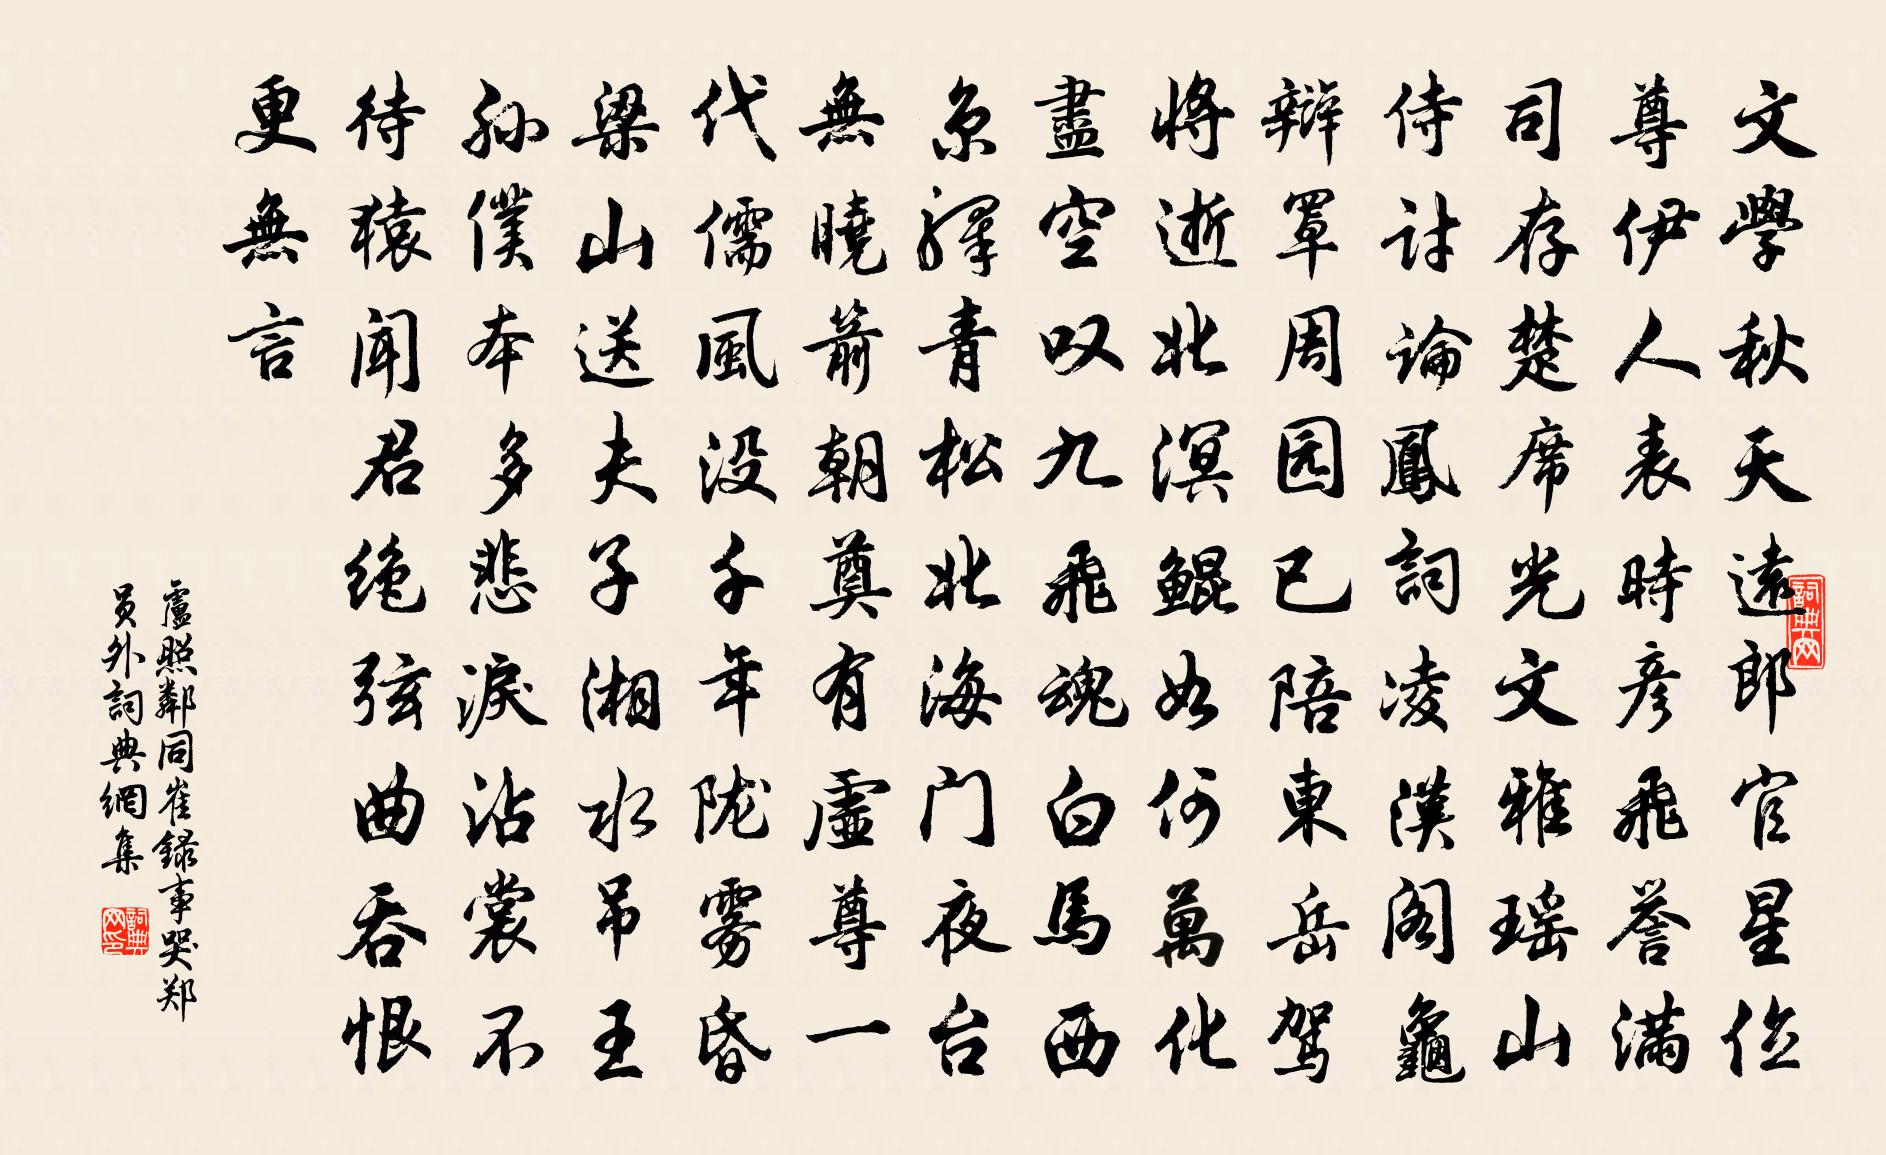 文學秋天遠郎官星位
尊伊人表時彦飛誉滿
司存楚席光文雅瑶山
侍討論鳳詞凌漢阁龜
辯罩周园已陪東岳驾
将逝北溟鲲如何萬化
盡空叹九飛魂白馬西
京驛青松北海门夜台
無曉箭朝奠有虚尊一
代儒風没千年陇雾昏
梁山送夫子湘水吊王
孙僕本多悲淚沾裳不
待猿闻君绝弦曲吞恨
更無言
盧照鄰同崔録事哭郑
員外詞典網集
詞典网
詞典网印